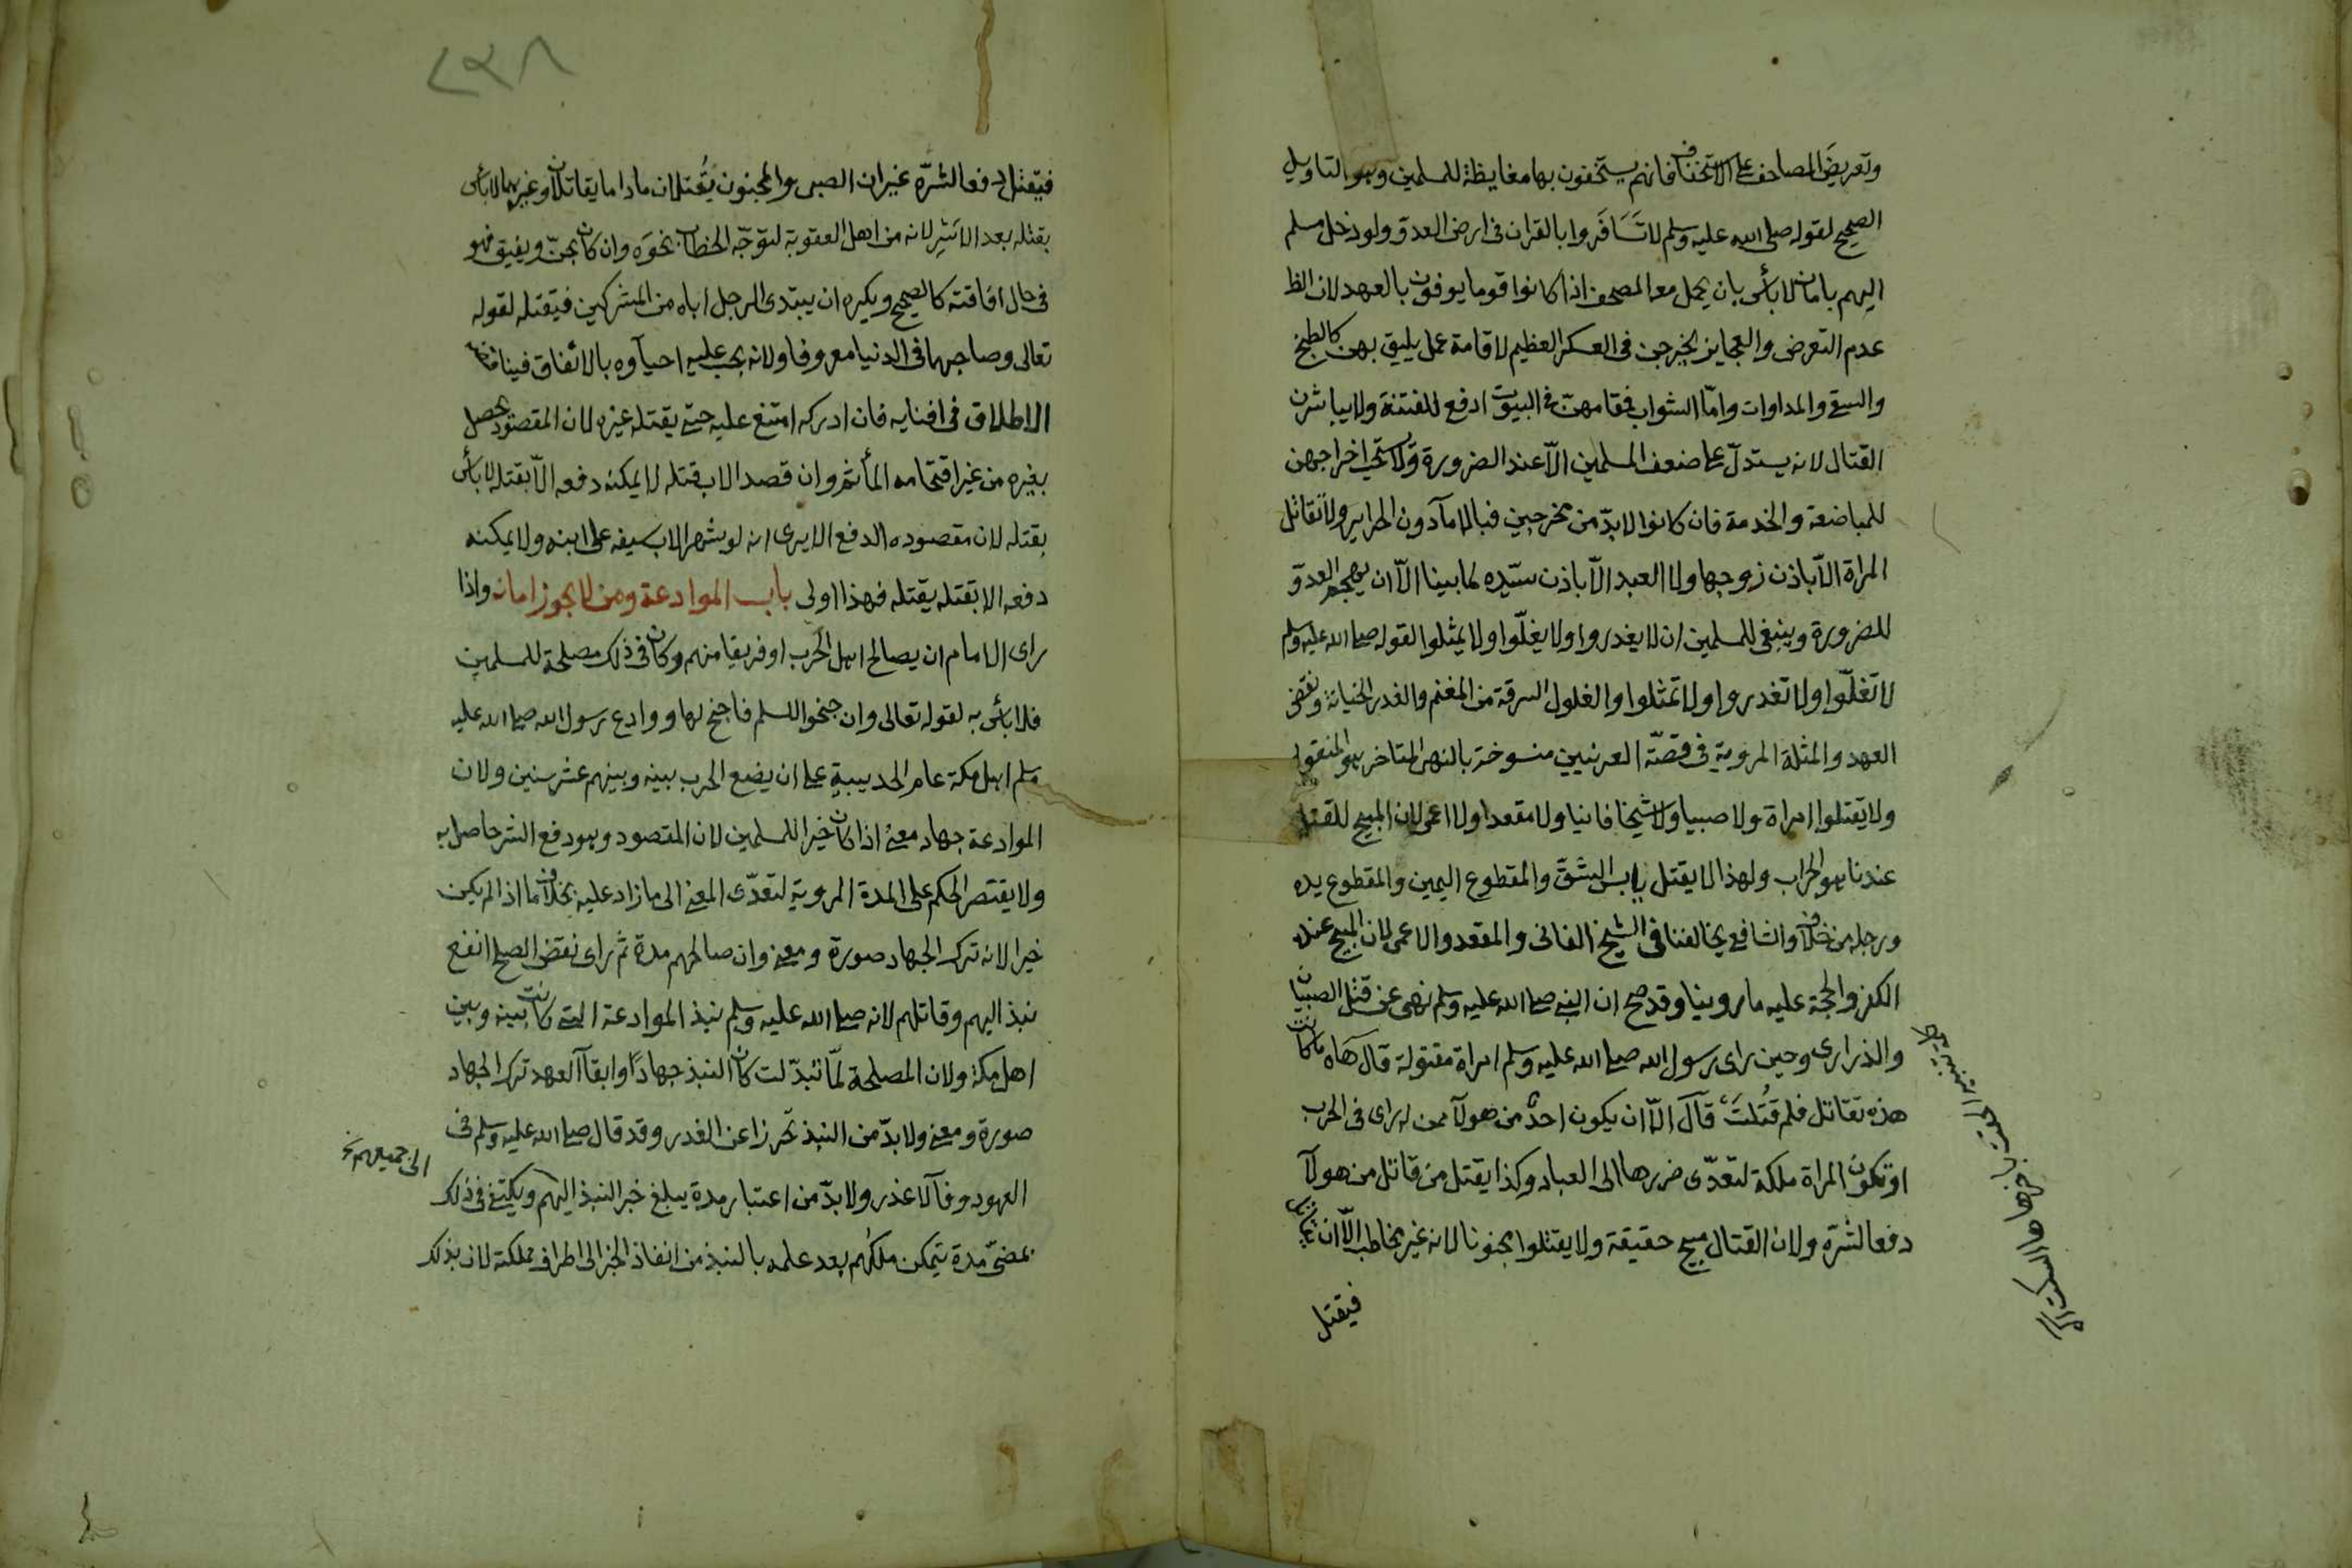 وتعريض المصاحف على الاستخفاف فانهم يستخفون بها مغايظة للمسلمين وهو التاويل
الصحيح لقوله صلى الله عليه وسلم لا تسافروا بالقران في ارض العدو ولو دخل مسلم
اليهم بامان لا بأس بان يحمل معه المصحف اذا كانوا قوما يوفون بالعهد لان الظا
عدم التعرض والعجايز يخرجن في العسكر العظيم لاقامة عمل يليق بهن كالطبخ
والسقي والمداوات وامّا الشواب فقامهنّ في البيوت ادفع للفتنة ولا يباشرن
القتال لانه يستدلّ على ضعف المسلمين الّا عند الضرورة ولا يستحب اخراجهن
للمباضعة والخدمة فان كانوا لا بدّ من مخرجين فبالامآ دون الحراير ولا تقاتل
المراة الّا باذن زوجها ولا العبد الّا باذن سيّده لما بينا الّا ان يهجم العدوّ
للضرورة وينبغي للمسلمين ان لا يغدروا ولا يغلّوا ولا يمثلوا لقوله صلى الله عليه وسلم
لا تغلّوا ولا تغدروا ولا تمثلوا والغلول السرقة من المغنم والغدر الخيانة ونقض
العهد والمثلة المروية في قصّة العرنيين منسوخة بالنهي المتاخر هو المنقول
ولا يقتلوا امراة ولا صبيا ولا شيخا فانيا ولا مقعدا ولا اعمى لان المبيح للقتل
عندنا هو الحراب ولهذا لا يقتل يابس الشقّ والمقطوع اليمين والمقطوع يده
ورجله من خلاف والشافعي يخالفنا في الشيخ الفاني والمقعد والاعمى لان المبيح عنده
الكفر والحجة عليه ما روينا وقد صح ان النبي صلى الله عليه وسلم نهى عن قتل الصبيان
والذراري وحين راى رسول الله صلى الله عليه وسلم امراة مقتولة قال هاه ما كانت
هذه تقاتل فلم قُتلت قال الّا ان يكون احدٌ من هولآ ممن له راى في الحرب
او تكون المراة ملكة لتعدّى ضررها الى العباد وكذا يقتل من قاتل من هولآ
دفعا لشرّه ولان القتال مبيح حقيقة ولا يقتلوا مجنونا لانه غير مخاطب الّا ان يقاتل
فيقتل
٢٣٨
فيقتل دفعا لشرّه غير ان الصبي والمجنون يُقتلان ما داما يقاتلان وغيرهما لا بأس
بقتله بعد الاسر لانه من اهل العقوبة لتوجّه الخطاب نحوه وان كان يجنّ ويفيق فهو
في حال افاقته كالصحيح ويكره ان يبتدى الرجل اباه من المشركين فيقتله لقوله
تعالى وصاحبهما في الدنيا معروفا ولانه يجب عليه احيآوه بالانفاق فيناقضه
الاطلاق في افنايه فان ادركه امتنع عليه حتى يقتله غيره لان المقصود يحصل
بغيره من غير اقتحامه المأثم وان قصد الاب قتله لا يمكنه دفعه الّا بقتله لا بأس
بقتله لان مقصوده الدفع الا يرى انه لو شهر الاب سيفه على ابنه ولا يمكنه
دفعه الا بقتله يقتله فهذا اولى باب الموادعة ومن لا يجوز امانه واذا
راى الامام ان يصالح اهل الحرب او فريقا منهم وكان في ذلك مصلحة للمسلمين
فلا بأس به لقوله تعالى وان جنحوا للسلم فاجنح لها ووادع رسول الله صلى الله عليه
وسلم اهل مكة عام الحديبية على ان يضع الحرب بينه وبينهم عشر سنين ولان
الموادعة جهاد معنى اذا كان خيرا للمسلمين لان المقصود وهو دفع الشر حاصل به
ولا يقتصر الحكم على المدة المروية لتعدّى المعنى الى ما زاد عليه بخلاف ما اذا لم يكن
خيرا لانه ترك الجهاد صورة ومعنى وان صالحهم مدة ثم راى نقض الصلح انفع
نبذ اليهم وقاتلهم لانه صلى الله عليه وسلم نبذ الموادعة التي كانت بينه وبين
اهل مكة ولان المصلحة لمّا تبدّلت كان النبذ جهادًا وابقآ العهد ترك الجهاد
صورة ومعنى ولا بدّ من النبذ تحرزا عن الغدر وقد قال صلى الله عليه وسلم في
العهود وفآ لا غدر ولا بدّ من اعتبار مدة يبلغ خبر النبذ اليهم ويكتفى في ذلك
الى جميعهم
بمضىّ مدة يتمكن ملكهم بعد علمه بالنبذ من انفاذ الخبر الى اطراف مملكته لان بذلك